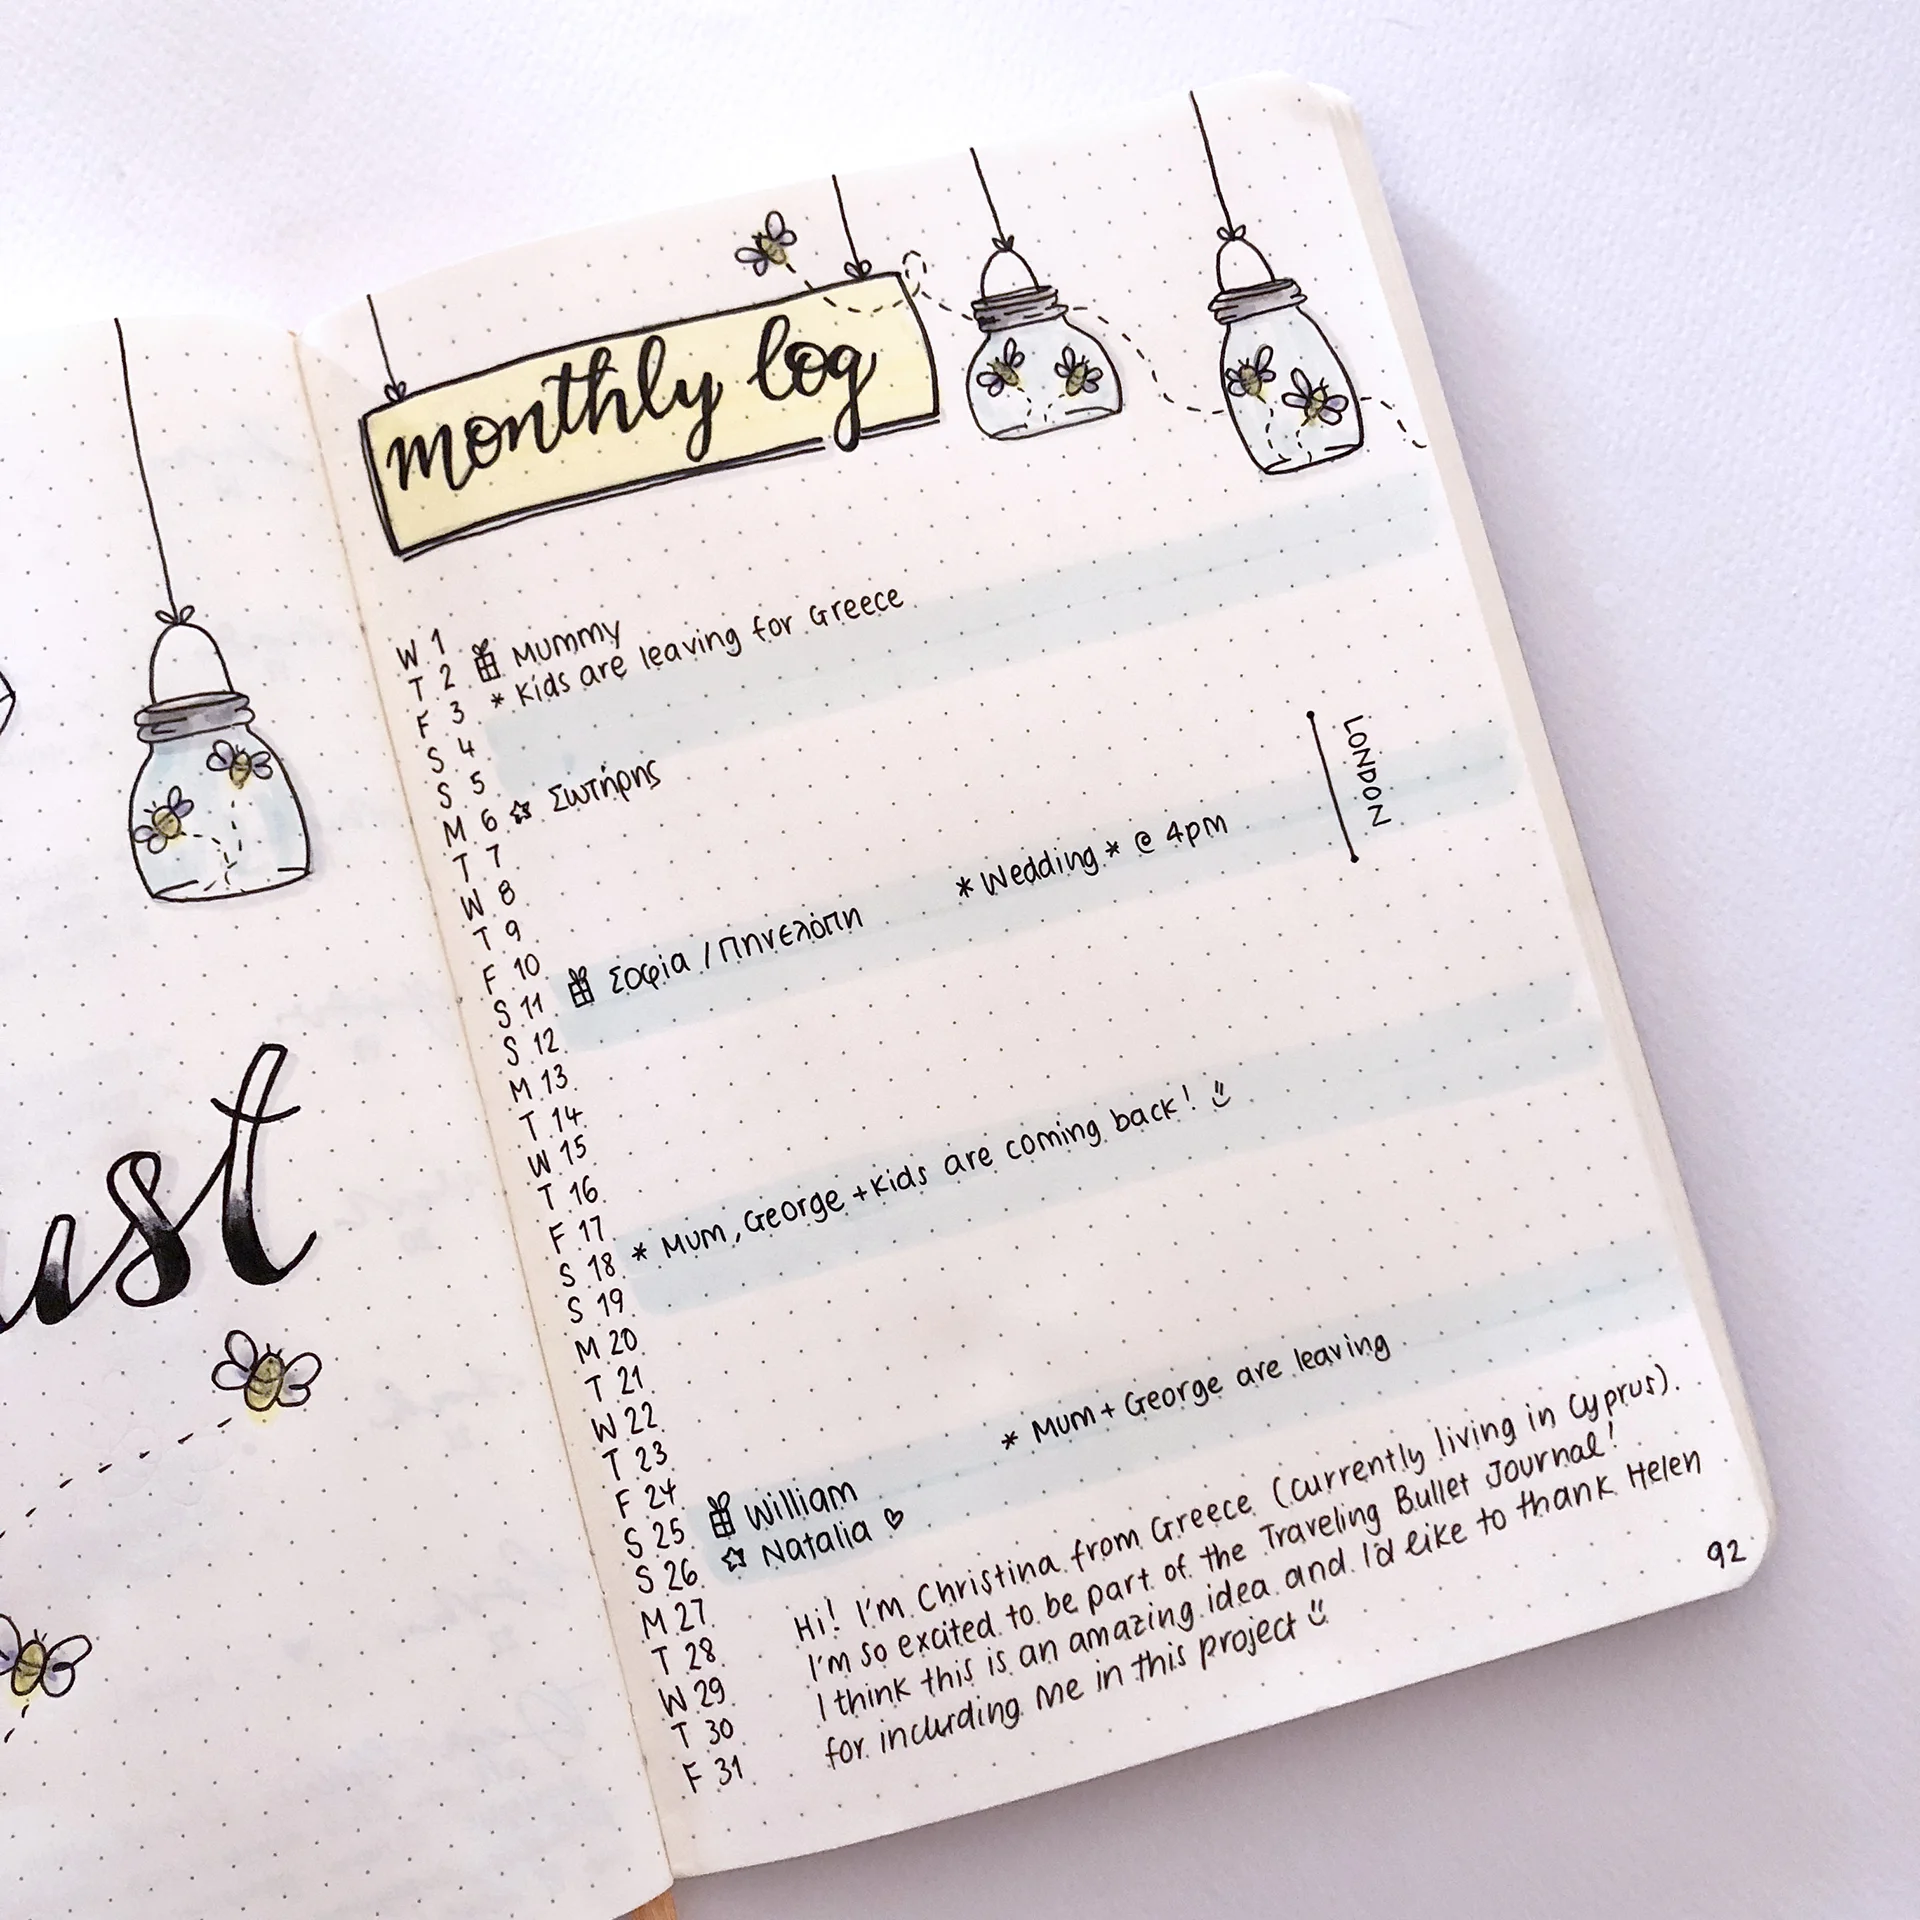 monthly log
W 1
T 2 Mummy
F 3 * Kids are leaving for Greece
S 4
S 5
M 6 Σωτήρης
T 7
W 8
T 9
F 10
S 11 Σοφία / Πηνελόπη * Wedding * @ 4pm
S 12
M 13
T 14
W 15
T 16
F 17
S 18 * Mum, George + Kids are coming back! :)
S 19
M 20
T 21
W 22
T 23
F 24
S 25 William * Mum + George are leaving
S 26 Natalia ♡
M 27
T 28
W 29
T 30
F 31
LONDON
Hi! I'm Christina from Greece (currently living in Cyprus).
I'm so excited to be part of the Traveling Bullet Journal!
I think this is an amazing idea and I'd like to thank Helen
for including me in this project :)
92
ust